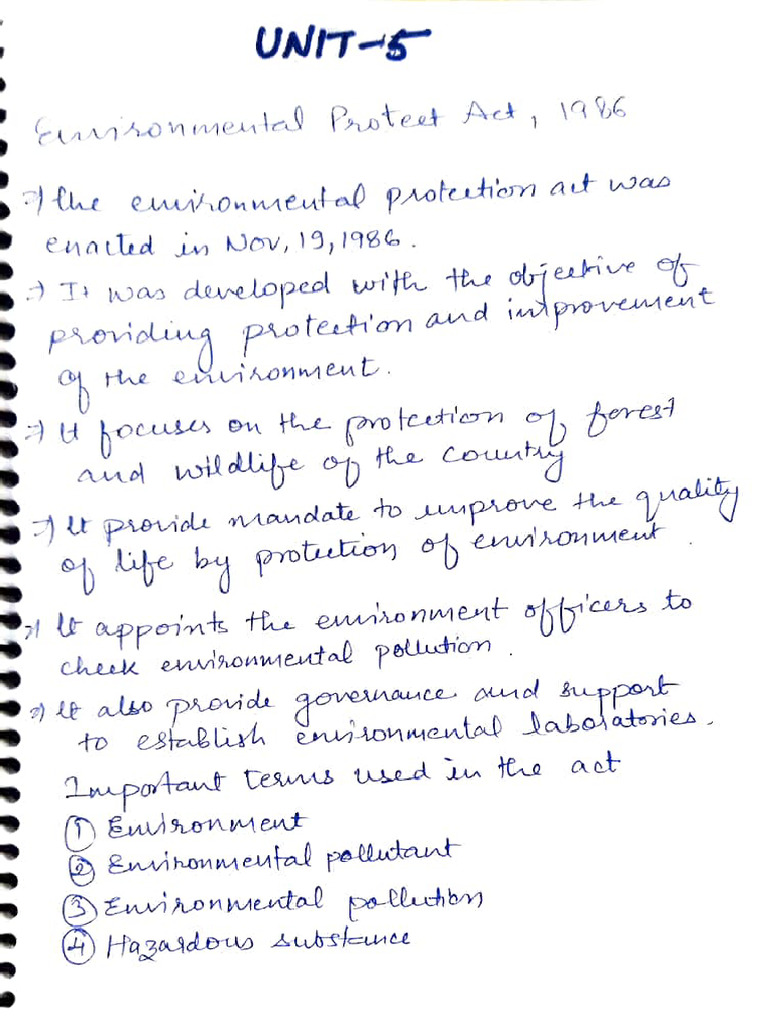 UNIT-5
Environmental Protect Act, 1986
⇒ The environmental protection act was
enacted in Nov, 19, 1986.
⇒ It was developed with the objective of
providing protection and improvement
of the environment.
⇒ It focuses on the protection of forest
and wildlife of the country
⇒ It provide mandate to improve the quality
of life by protection of environment.
⇒ It appoints the environment officers to
check environmental pollution.
⇒ It also provide governance and support
to establish environmental laboratories.
Important terms used in the act
① Environment
② Environmental pollutant
③ Environmental pollution
④ Hazardous substance